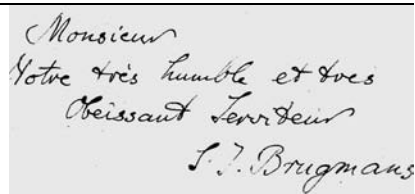 Monsieur
Votre très humble et tres
Obeissant Serviteur
S. J. Brugmans